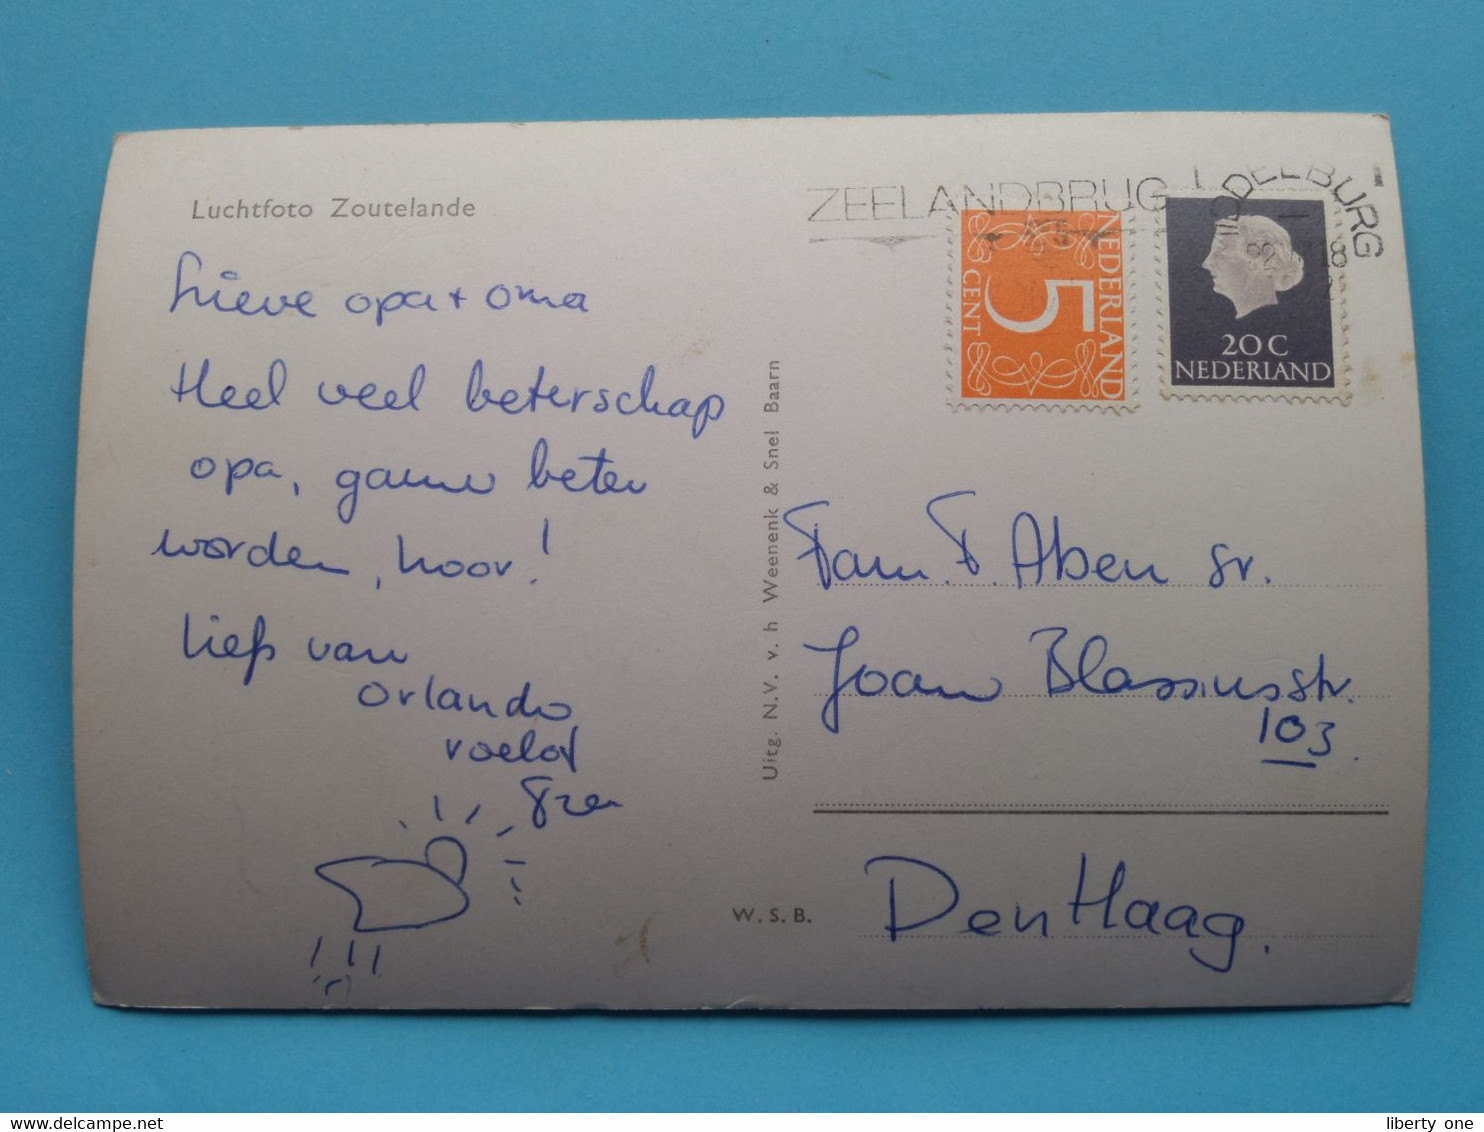 Luchtfoto Zoutelande
Lieve opa + oma
Heel veel beterschap
opa, gauw beter
worden, hoor!
liefs van
orlando
roelof
Uitg. N.V. v. h Weenenk & Snel Baarn
W.S.B.
ZEELANDBRUG
IDDELBURG
18
NEDERLAND
5
CENT
20 C
NEDERLAND
Fam. F. Aben sr.
Joan Blasiusstr.
103
Den Haag.
liberty one